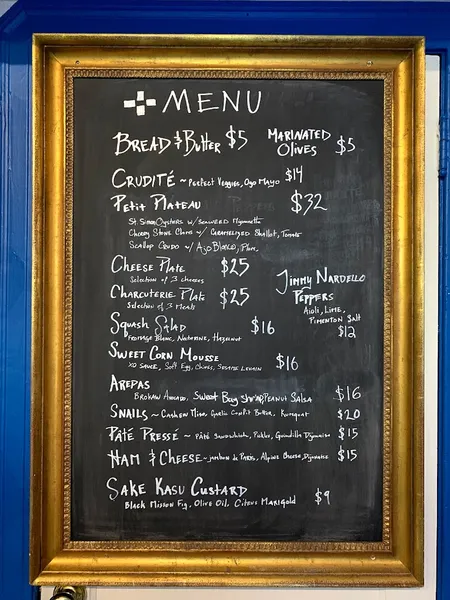 MENU
BREAD & Butter $5
MARINATED OLIVES $5
CRUDITÉ ~ Perfect Veggies, Ogo Mayo $14
Petit Plateau $32
St. Simon Oysters w/ SEAWEED Mignonette
Cherry Stone Clams w/ Caramelized Shallot, Tomato
Scallop Crudo w/ Ajo Blanco, Plum
CHEESE PLATE $25
Selection of 3 cheeses
CHARCUTERIE PLATE $25
Selection of 3 Meats
Jimmy NARDELLO PEPPERS
Aioli, Lime,
PIMENTON SALT
$12
Squash SALAD $16
Fromage Blanc, Nectarine, Hazelnut
SWEET CORN MOUSSE $16
XO SAUCE, Soft Egg, Chives, SESAME
AREPAS $16
Avocado, Sweet Bay Shrimp, PEANUT SALSA
SNAILS ~ Cashew Miso, Garlic Confit Butter, Kumquat $20
PÂTÉ PRESSÉ ~ PÂTÉ Sandwich, Pickles, Dijonnaise $15
HAM & CHEESE ~ jambon de PARIS, Alpine Cheese, Dijonnaise $15
SAKE KASU CUSTARD $9
Black Mission Fig, Olive Oil, Citrus MARIGOLD